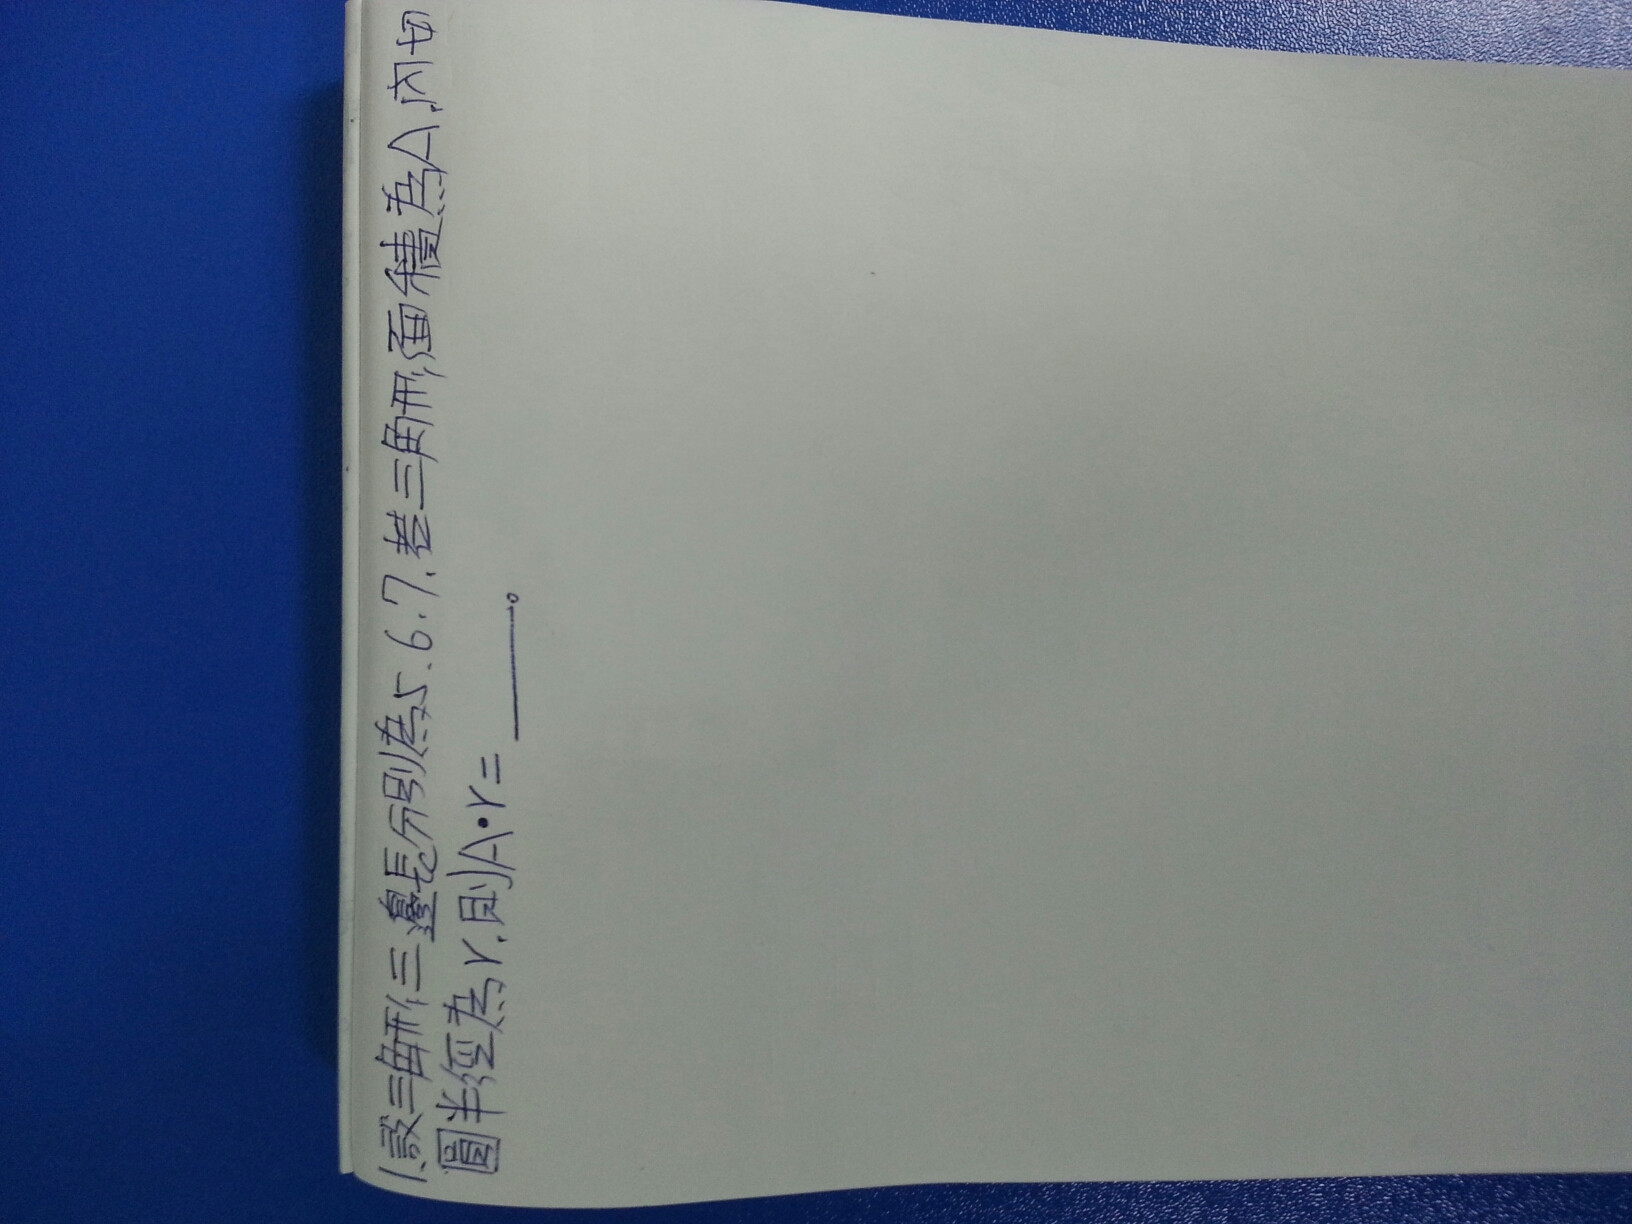 1.設三角形三邊長分別為5.6.7,若三角形面積為A,內切
圓半徑為r,則A•r=______。